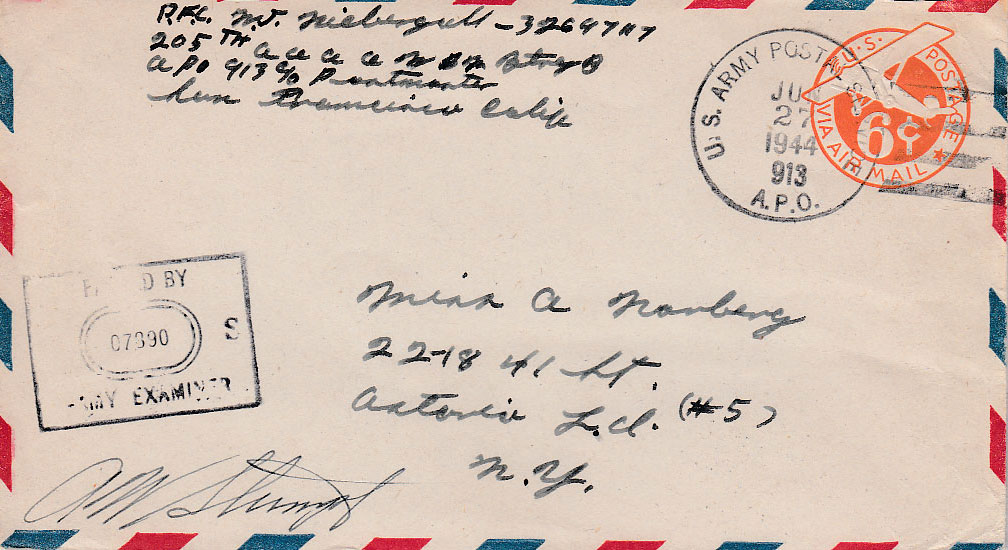 P.F.C. W.J. Niebergall - 32697117
205TH A A A A W BN Btry B
APO 913 c/o Postmaster
San Francisco Calif
U.S. ARMY POSTAL SERVICE
JUN
27
1944
913
A.P.O.
U.S. POSTAGE
6¢
VIA AIR MAIL
PASSED BY
07890
S
ARMY EXAMINER
Miss A Norberg
22-18 41 St.
Astoria L.I. (#5)
N.Y.